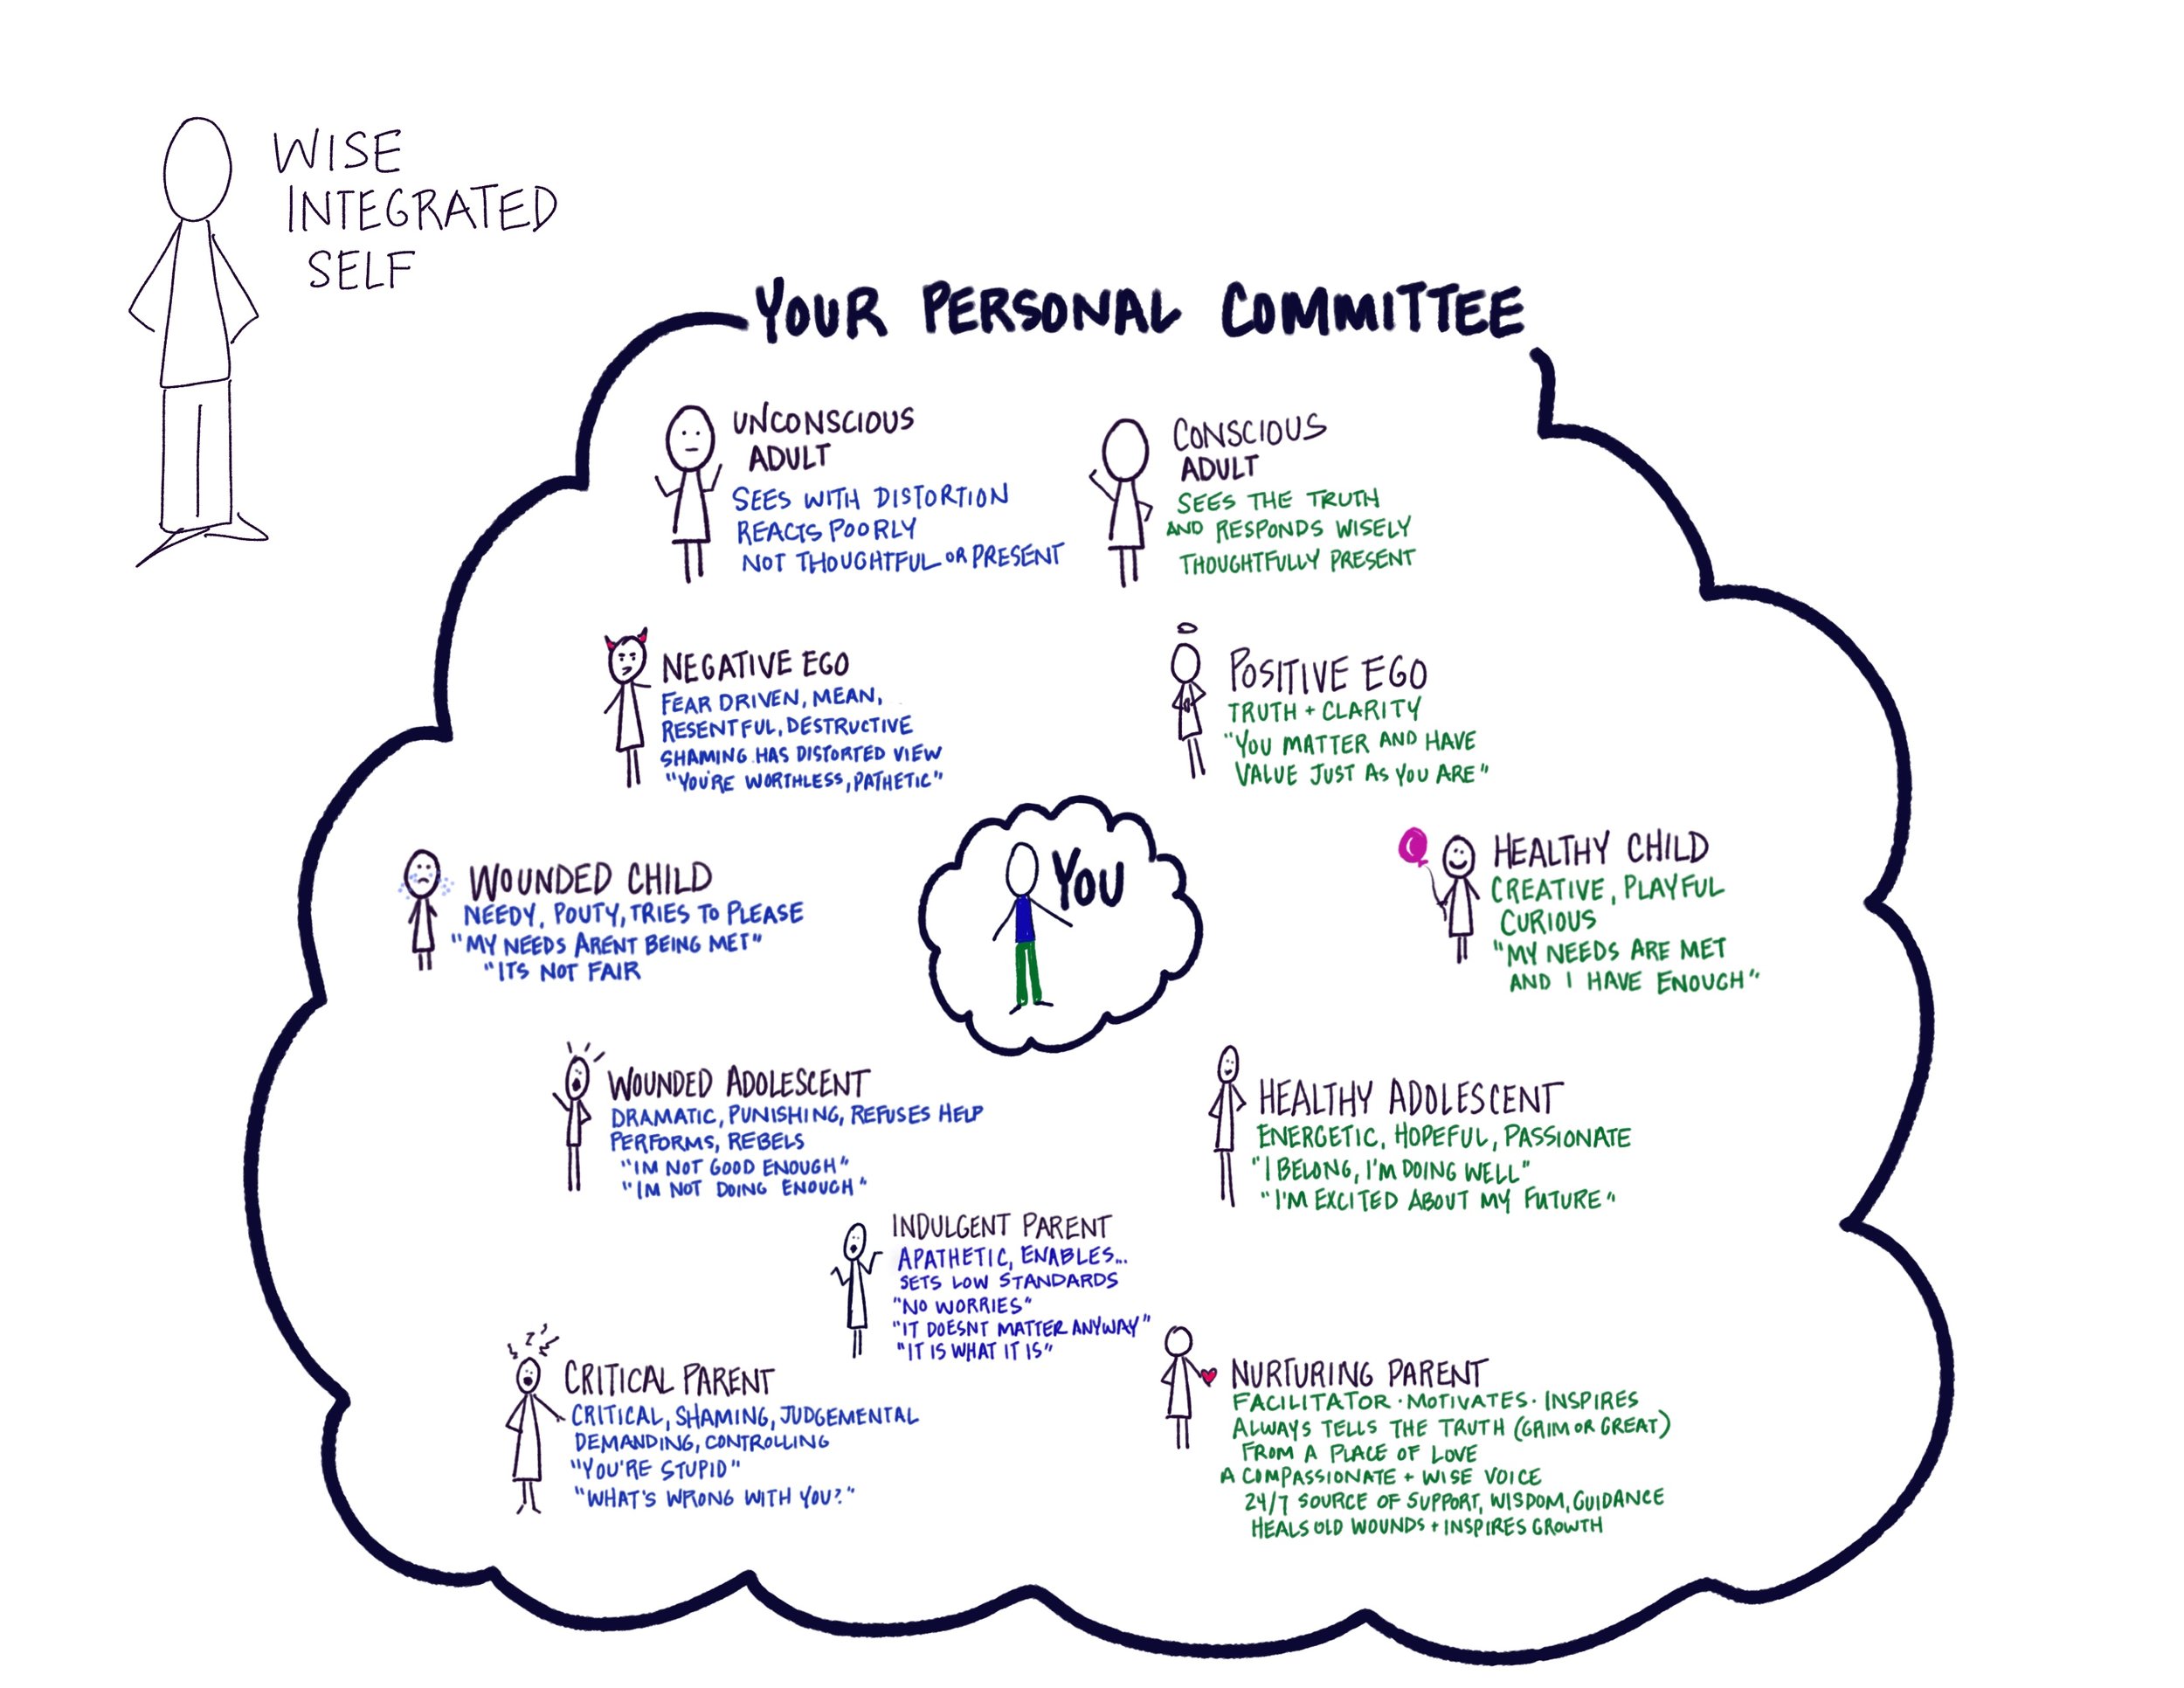 WISE
INTEGRATED
SELF
YOUR PERSONAL COMMITTEE
UNCONSCIOUS
ADULT
SEES WITH DISTORTION
REACTS POORLY
NOT THOUGHTFUL OR PRESENT
CONSCIOUS
ADULT
SEES THE TRUTH
AND RESPONDS WISELY
THOUGHTFULLY PRESENT
NEGATIVE EGO
FEAR DRIVEN, MEAN,
RESENTFUL, DESTRUCTIVE
SHAMING. HAS DISTORTED VIEW
"YOU'RE WORTHLESS, PATHETIC"
POSITIVE EGO
TRUTH + CLARITY
"YOU MATTER AND HAVE
VALUE JUST AS YOU ARE"
WOUNDED CHILD
NEEDY, POUTY, TRIES TO PLEASE
"MY NEEDS ARENT BEING MET"
"ITS NOT FAIR
YOU
HEALTHY CHILD
CREATIVE, PLAYFUL
CURIOUS
"MY NEEDS ARE MET
AND I HAVE ENOUGH"
WOUNDED ADOLESCENT
DRAMATIC, PUNISHING, REFUSES HELP
PERFORMS, REBELS
"IM NOT GOOD ENOUGH"
"IM NOT DOING ENOUGH"
HEALTHY ADOLESCENT
ENERGETIC, HOPEFUL, PASSIONATE
"I BELONG, I'M DOING WELL"
"I'M EXCITED ABOUT MY FUTURE"
INDULGENT PARENT
APATHETIC, ENABLES...
SETS LOW STANDARDS
"NO WORRIES"
"IT DOESNT MATTER ANYWAY"
"IT IS WHAT IT IS"
CRITICAL PARENT
CRITICAL, SHAMING, JUDGEMENTAL
DEMANDING, CONTROLLING
"YOU'RE STUPID"
"WHAT'S WRONG WITH YOU?"
NURTURING PARENT
FACILITATOR · MOTIVATES · INSPIRES
ALWAYS TELLS THE TRUTH (GRIM OR GREAT)
FROM A PLACE OF LOVE
A COMPASSIONATE + WISE VOICE
24/7 SOURCE OF SUPPORT, WISDOM, GUIDANCE
HEALS OLD WOUNDS + INSPIRES GROWTH